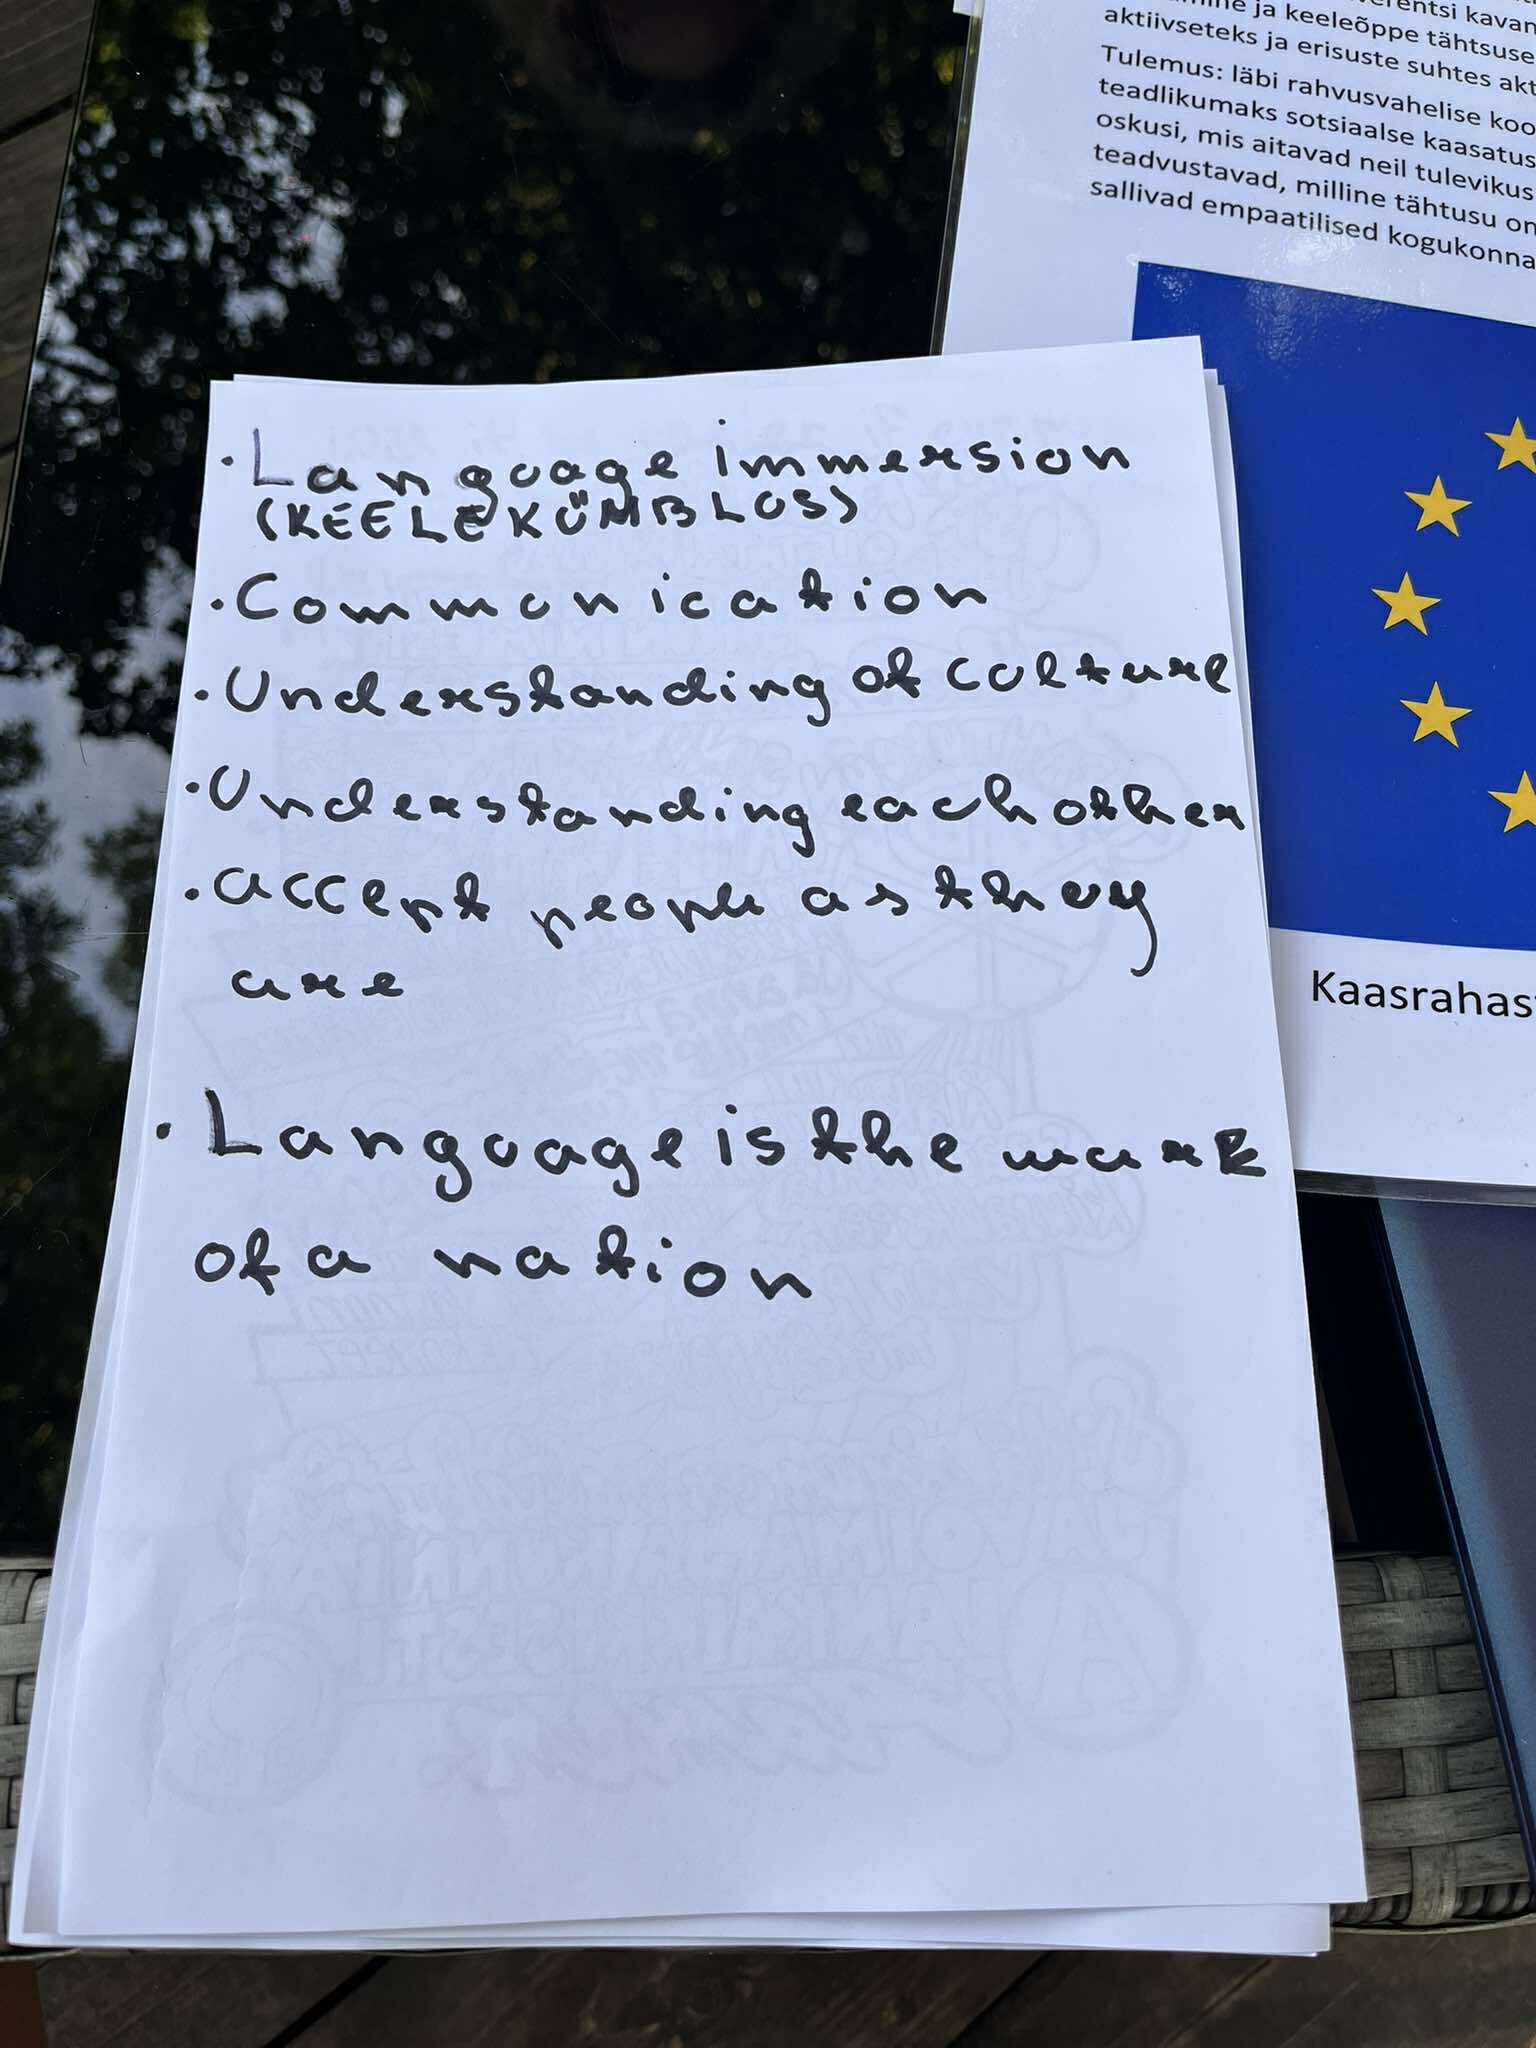 ja keeleõppe tähtsuse
aktiivseteks ja erisuste suhtes
Tulemus: läbi rahvusvahelise
teadlikumaks sotsiaalse
oskusi, mis aitavad neil
teadvustavad, milline tähtusu on
sallivad empaatilised
• Language immersion
(KEELEKÜMBLUS)
• Communication
• Understanding of culture
• Understanding each other
• accept people as they
are
• Language is the mark
of a nation